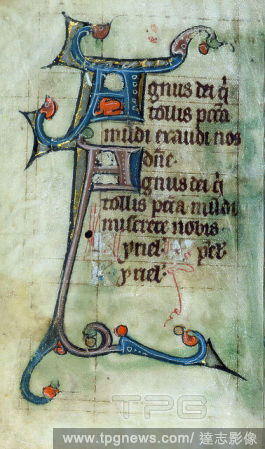 Agnus dei q̄
tollis pc̄ta
mūdi exaudi nos
dn̄e.
Agnus dei q̄
tollis pc̄ta mūdi
miserere nobis
yriel. pat̄er
yriel.
TPG
www.tpgnews.com/ 達志影像